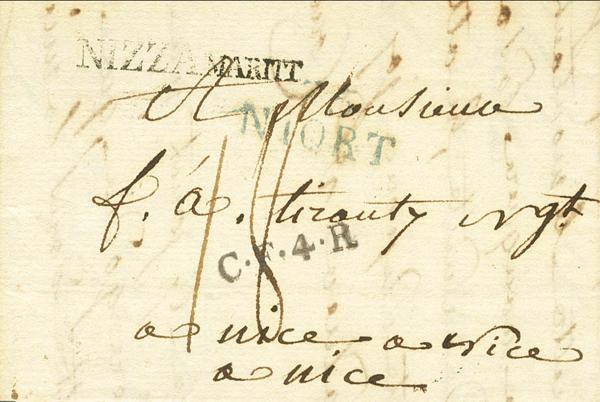 NIZZA MARITT.
A Monsieur
NIORT
f. a. tiranty ngt
18
C.F.4.R
a nice a nice
a nice